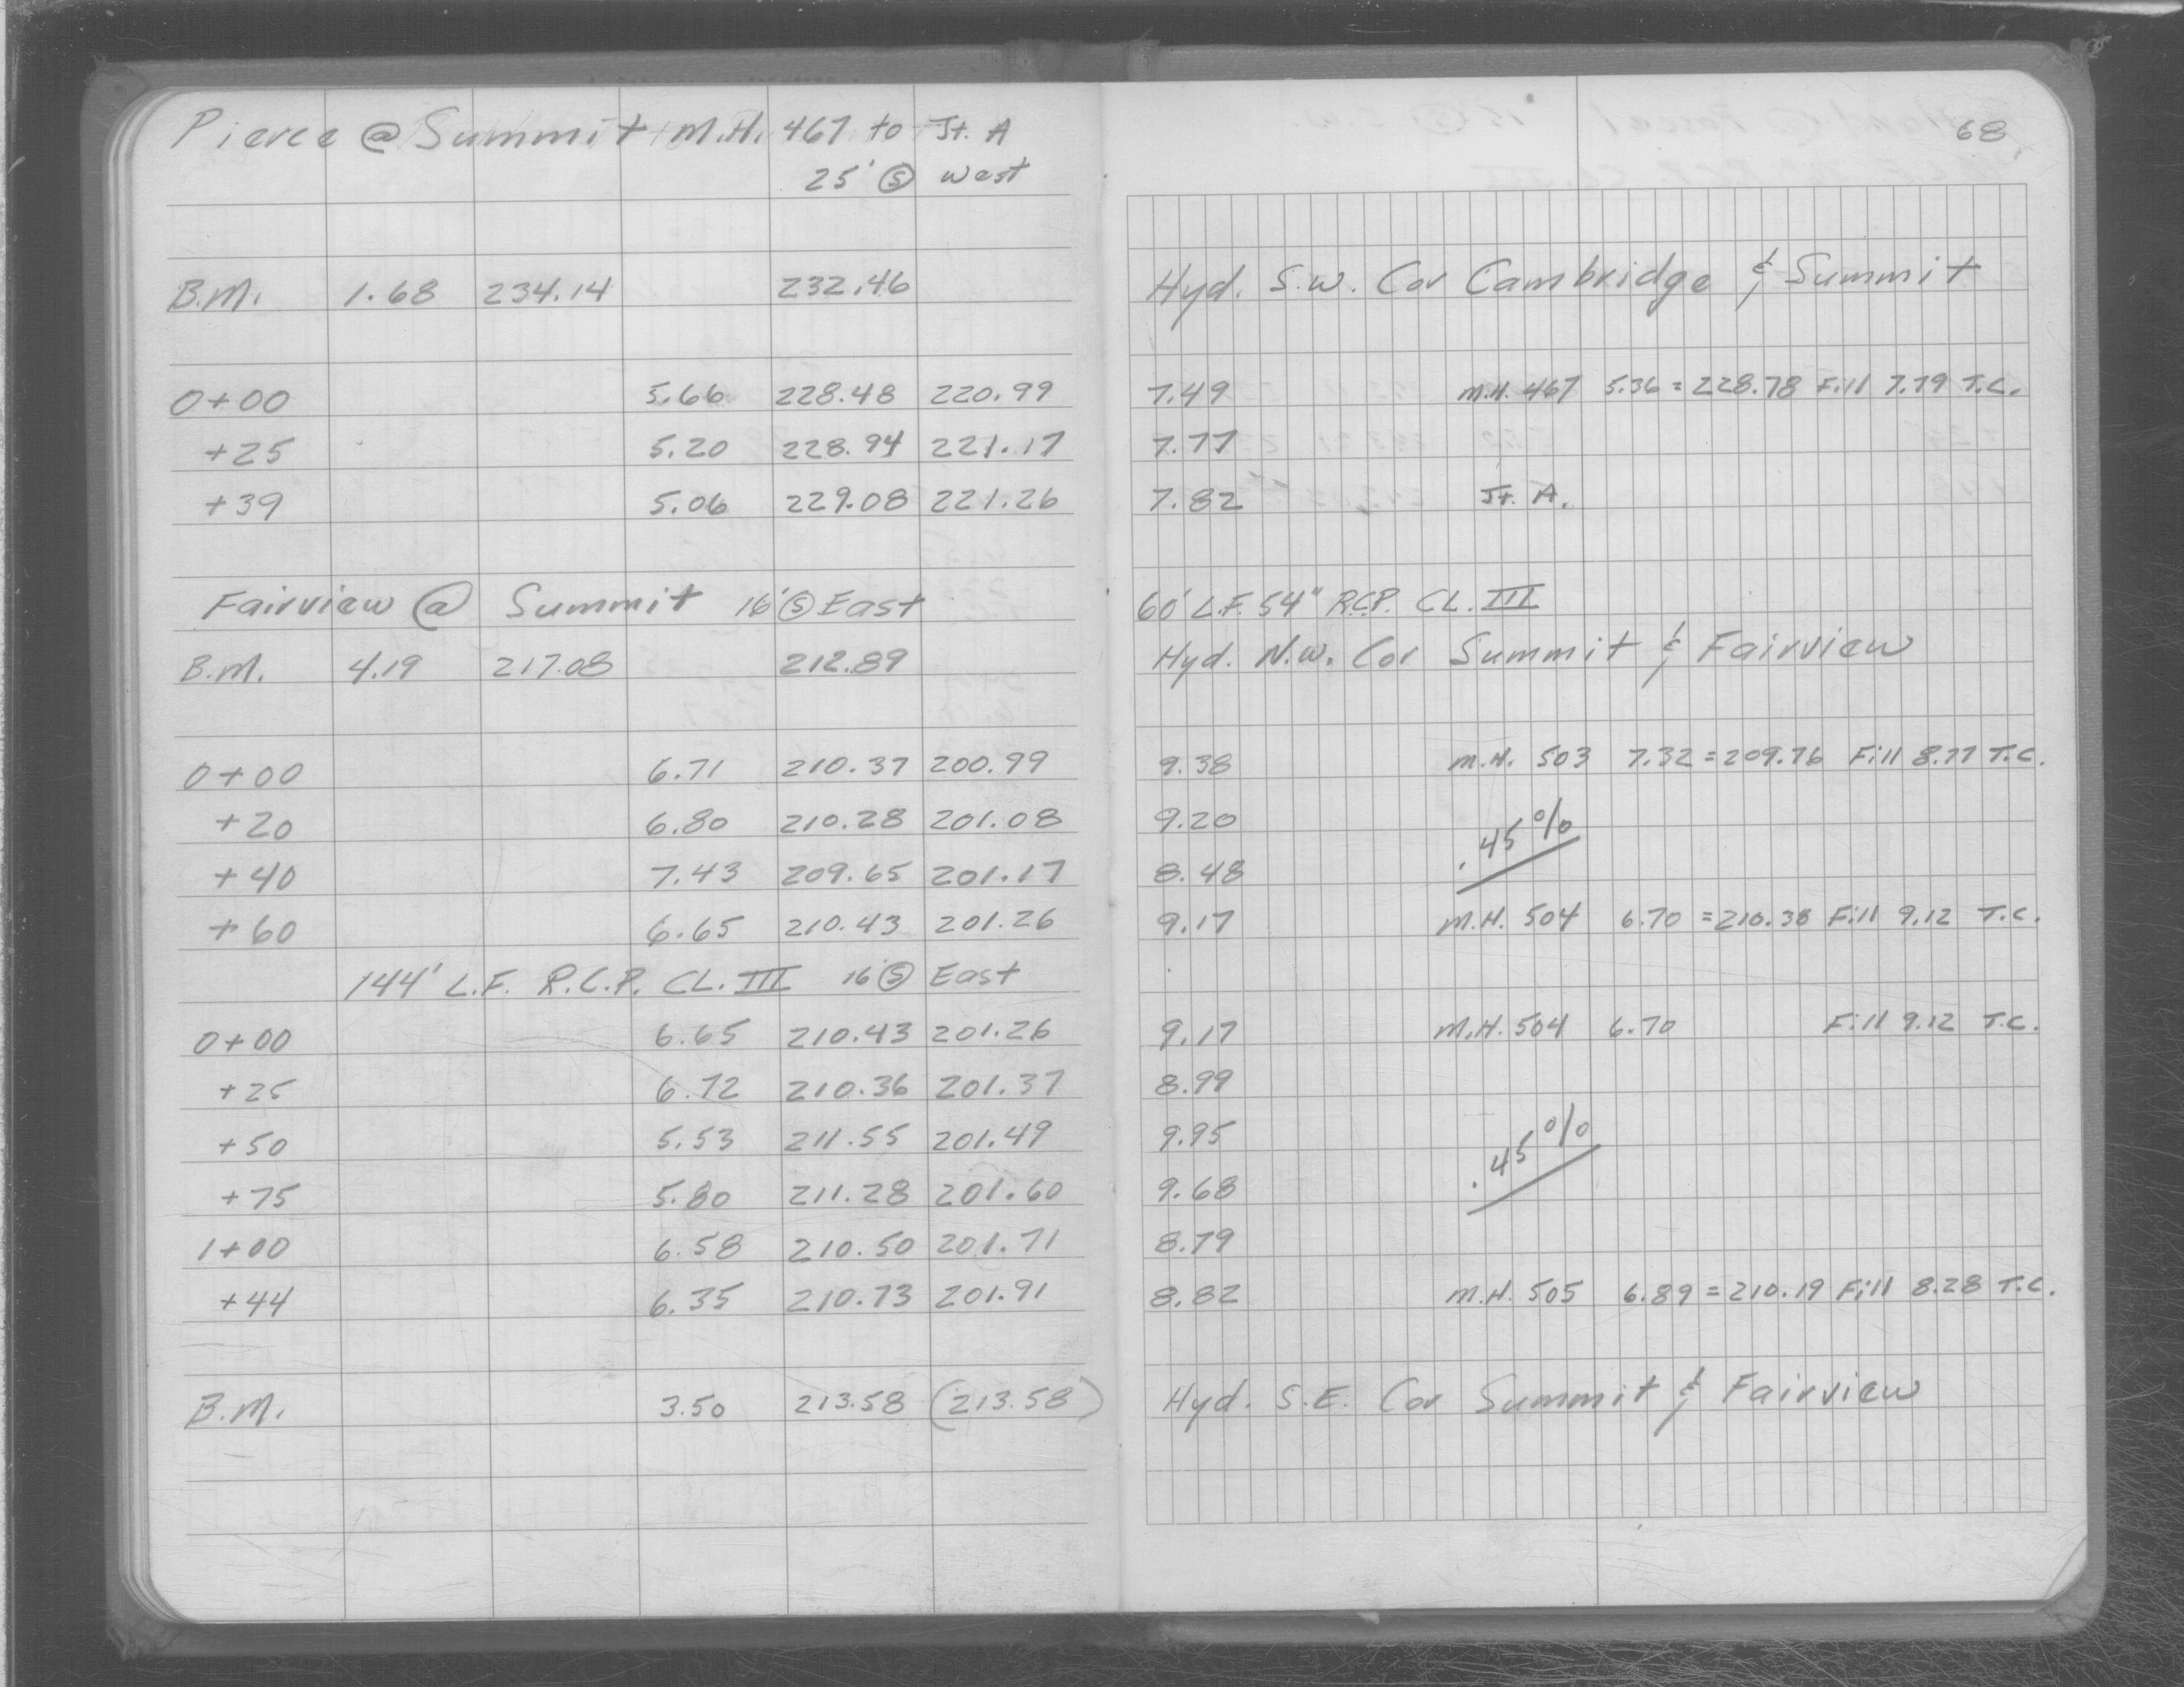 Pierce @ Summit M.H. 467 to Jt. A
25' Ⓢ West
68
B.M. 1.68 234.14 232.46 Hyd. S.W. Cor Cambridge & Summit
0+00 5.66 228.48 220.99 7.49 M.H. 467 5.36 = 228.78 Fill 7.79 T.C.
+25 5.20 228.94 221.17 7.77
+39 5.06 229.08 221.26 7.82 Jt. A.
Fairview @ Summit 16' Ⓢ East 60' L.F. 54" R.C.P. CL. III
B.M. 4.19 217.08 212.89 Hyd. N.W. Cor Summit & Fairview
0+00 6.71 210.37 200.99 9.38 M.H. 503 7.32 = 209.76 Fill 8.77 T.C.
+20 6.80 210.28 201.08 9.20
.45%
+40 7.43 209.65 201.17 8.48
+60 6.65 210.43 201.26 9.17 M.H. 504 6.70 = 210.38 Fill 9.12 T.C.
144' L.F. R.C.P. CL. III 16' Ⓢ East
0+00 6.65 210.43 201.26 9.17 M.H. 504 6.70 Fill 9.12 T.C.
+25 6.72 210.36 201.37 8.99
+50 5.53 211.55 201.49 9.95
.45%
+75 5.80 211.28 201.60 9.68
1+00 6.58 210.50 201.71 8.79
+44 6.35 210.73 201.91 8.82 M.H. 505 6.89 = 210.19 Fill 8.28 T.C.
B.M. 3.50 213.58 (213.58) Hyd. S.E. Cor Summit & Fairview